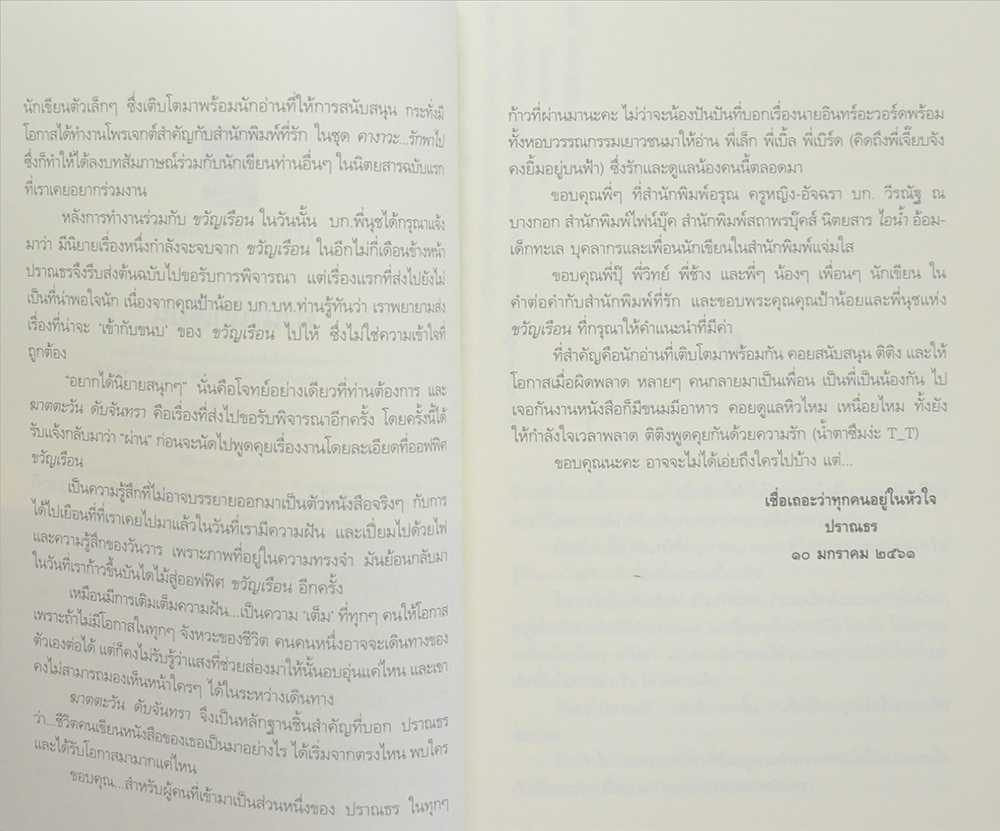 นักเขียนตัวเล็กๆ ซึ่งเติบโตมาพร้อมนักอ่านที่ให้การสนับสนุน กระทั่งมี
โอกาสได้ทำงานโพรเจกต์สำคัญกับสำนักพิมพ์ที่รัก ในชุด คาถาวะ...รักพาไป
ซึ่งก็ทำให้ได้ลงบทสัมภาษณ์ร่วมกับนักเขียนท่านอื่นๆ ในนิตยสารฉบับแรก
ที่เราเคยอยากร่วมงาน
หลังการทำงานร่วมกับ ขวัญเรือน ในวันนั้น บก.พี่นุชได้กรุณาแจ้ง
มาว่า มีนิยายเรื่องหนึ่งกำลังจะจบจาก ขวัญเรือน ในอีกไม่กี่เดือนข้างหน้า
ปราณธรจึงรีบส่งต้นฉบับไปขอรับการพิจารณา แต่เรื่องแรกที่ส่งไปยังไม่
เป็นที่น่าพอใจนัก เนื่องจากคุณป้าน้อย บก.บห.ท่านรู้ทันว่า เราพยายามส่ง
เรื่องที่น่าจะ 'เข้ากับขนบ' ของ ขวัญเรือน ไปให้ ซึ่งไม่ใช่ความเข้าใจที่
ถูกต้อง
"อยากได้นิยายสนุกๆ" นั่นคือโจทย์อย่างเดียวที่ท่านต้องการ และ
ฆาตตะวัน ดับจันทรา คือเรื่องที่ส่งไปขอรับพิจารณาอีกครั้ง โดยครั้งนี้ได้
รับแจ้งกลับมาว่า "ผ่าน" ก่อนจะนัดไปพูดคุยเรื่องงานโดยละเอียดที่ออฟฟิศ
ขวัญเรือน
เป็นความรู้สึกที่ไม่อาจบรรยายออกมาเป็นตัวหนังสือจริงๆ กับการ
ได้ไปเยือนที่ที่เราเคยไปมาแล้วในวันที่เรามีความฝัน และเปี่ยมไปด้วยไฟ
และความรู้สึกของวันวาร เพราะภาพที่อยู่ในความทรงจำ มันย้อนกลับมา
ในวันที่เราก้าวขึ้นบันไดไม้สู่ออฟฟิศ ขวัญเรือน อีกครั้ง
เหมือนมีการเติมเต็มความฝัน...เป็นความ 'เต็ม' ที่ทุกๆ คนให้โอกาส
เพราะถ้าไม่มีโอกาสในทุกๆ จังหวะของชีวิต คนคนหนึ่งอาจจะเดินทางของ
ตัวเองต่อได้ แต่ก็คงไม่รับรู้ว่าแสงที่ช่วยส่องมาให้นั้นอบอุ่นแค่ไหน และเขา
คงไม่สามารถมองเห็นหน้าใครๆ ได้ในระหว่างเดินทาง
ฆาตตะวัน ดับจันทรา จึงเป็นหลักฐานชิ้นสำคัญที่บอก ปราณธร
ว่า...ชีวิตคนเขียนหนังสือของเธอเป็นมาอย่างไร ได้เริ่มจากตรงไหน พบใคร
และได้รับโอกาสมามากแค่ไหน
ขอบคุณ...สำหรับผู้คนที่เข้ามาเป็นส่วนหนึ่งของ ปราณธร ในทุกๆ
ก้าวที่ผ่านมานะคะ ไม่ว่าจะน้องปันปันที่บอกเรื่องนายอินทร์อะวอร์ดพร้อม
ทั้งหอบวรรณกรรมเยาวชนมาให้อ่าน พี่เล็ก พี่เบิ้ล พี่เบิร์ด (คิดถึงพี่เจี๊ยบจัง
คงยิ้มอยู่บนฟ้า) ซึ่งรักและดูแลน้องคนนี้ตลอดมา
ขอบคุณพี่ๆ ที่สำนักพิมพ์อรุณ ครูหญิง-อัจฉรา บก. วีรณัฐ ณ
บางกอก สำนักพิมพ์ไฟน์บุ๊ค สำนักพิมพ์สถาพรบุ๊คส์ นิตยสาร ไอน้ำ อ้อม-
เด็กทะเล บุคลากรและเพื่อนนักเขียนในสำนักพิมพ์แจ่มใส
ขอบคุณพี่ปุ๊ พี่วิทย์ พี่ช้าง และพี่ๆ น้องๆ เพื่อนๆ นักเขียน ใน
คำต่อคำกับสำนักพิมพ์ที่รัก และขอบพระคุณคุณป้าน้อยและพี่นุชแห่ง
ขวัญเรือน ที่กรุณาให้คำแนะนำที่มีค่า
ที่สำคัญคือนักอ่านที่เติบโตมาพร้อมกัน คอยสนับสนุน ติติง และให้
โอกาสเมื่อผิดพลาด หลายๆ คนกลายมาเป็นเพื่อน เป็นพี่เป็นน้องกัน ไป
เจอกันงานหนังสือก็มีขนมมีอาหาร คอยดูแลหิวไหม เหนื่อยไหม ทั้งยัง
ให้กำลังใจเวลาพลาด ติติงพูดคุยกันด้วยความรัก (น้ำตาซึมง่ะ T_T)
ขอบคุณนะคะ อาจจะไม่ได้เอ่ยถึงใครไปบ้าง แต่...
เชื่อเถอะว่าทุกคนอยู่ในหัวใจ
ปราณธร
๑๐ มกราคม ๒๕๖๑